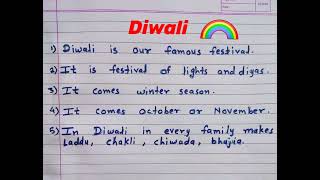 Diwali 🌈
1) Diwali is our famous festival.
2) It is festival of lights and diyas.
3) It comes winter season.
4) It comes October or November.
5) In Diwali in every family makes
Laddu, chakli, chiwada, bhajiya.